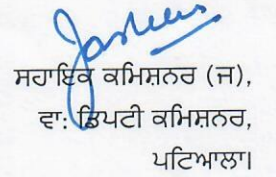 ਸਹਾਇਕ ਕਮਿਸ਼ਨਰ (ਜ),
ਵਾ: ਡਿਪਟੀ ਕਮਿਸ਼ਨਰ,
ਪਟਿਆਲਾ।